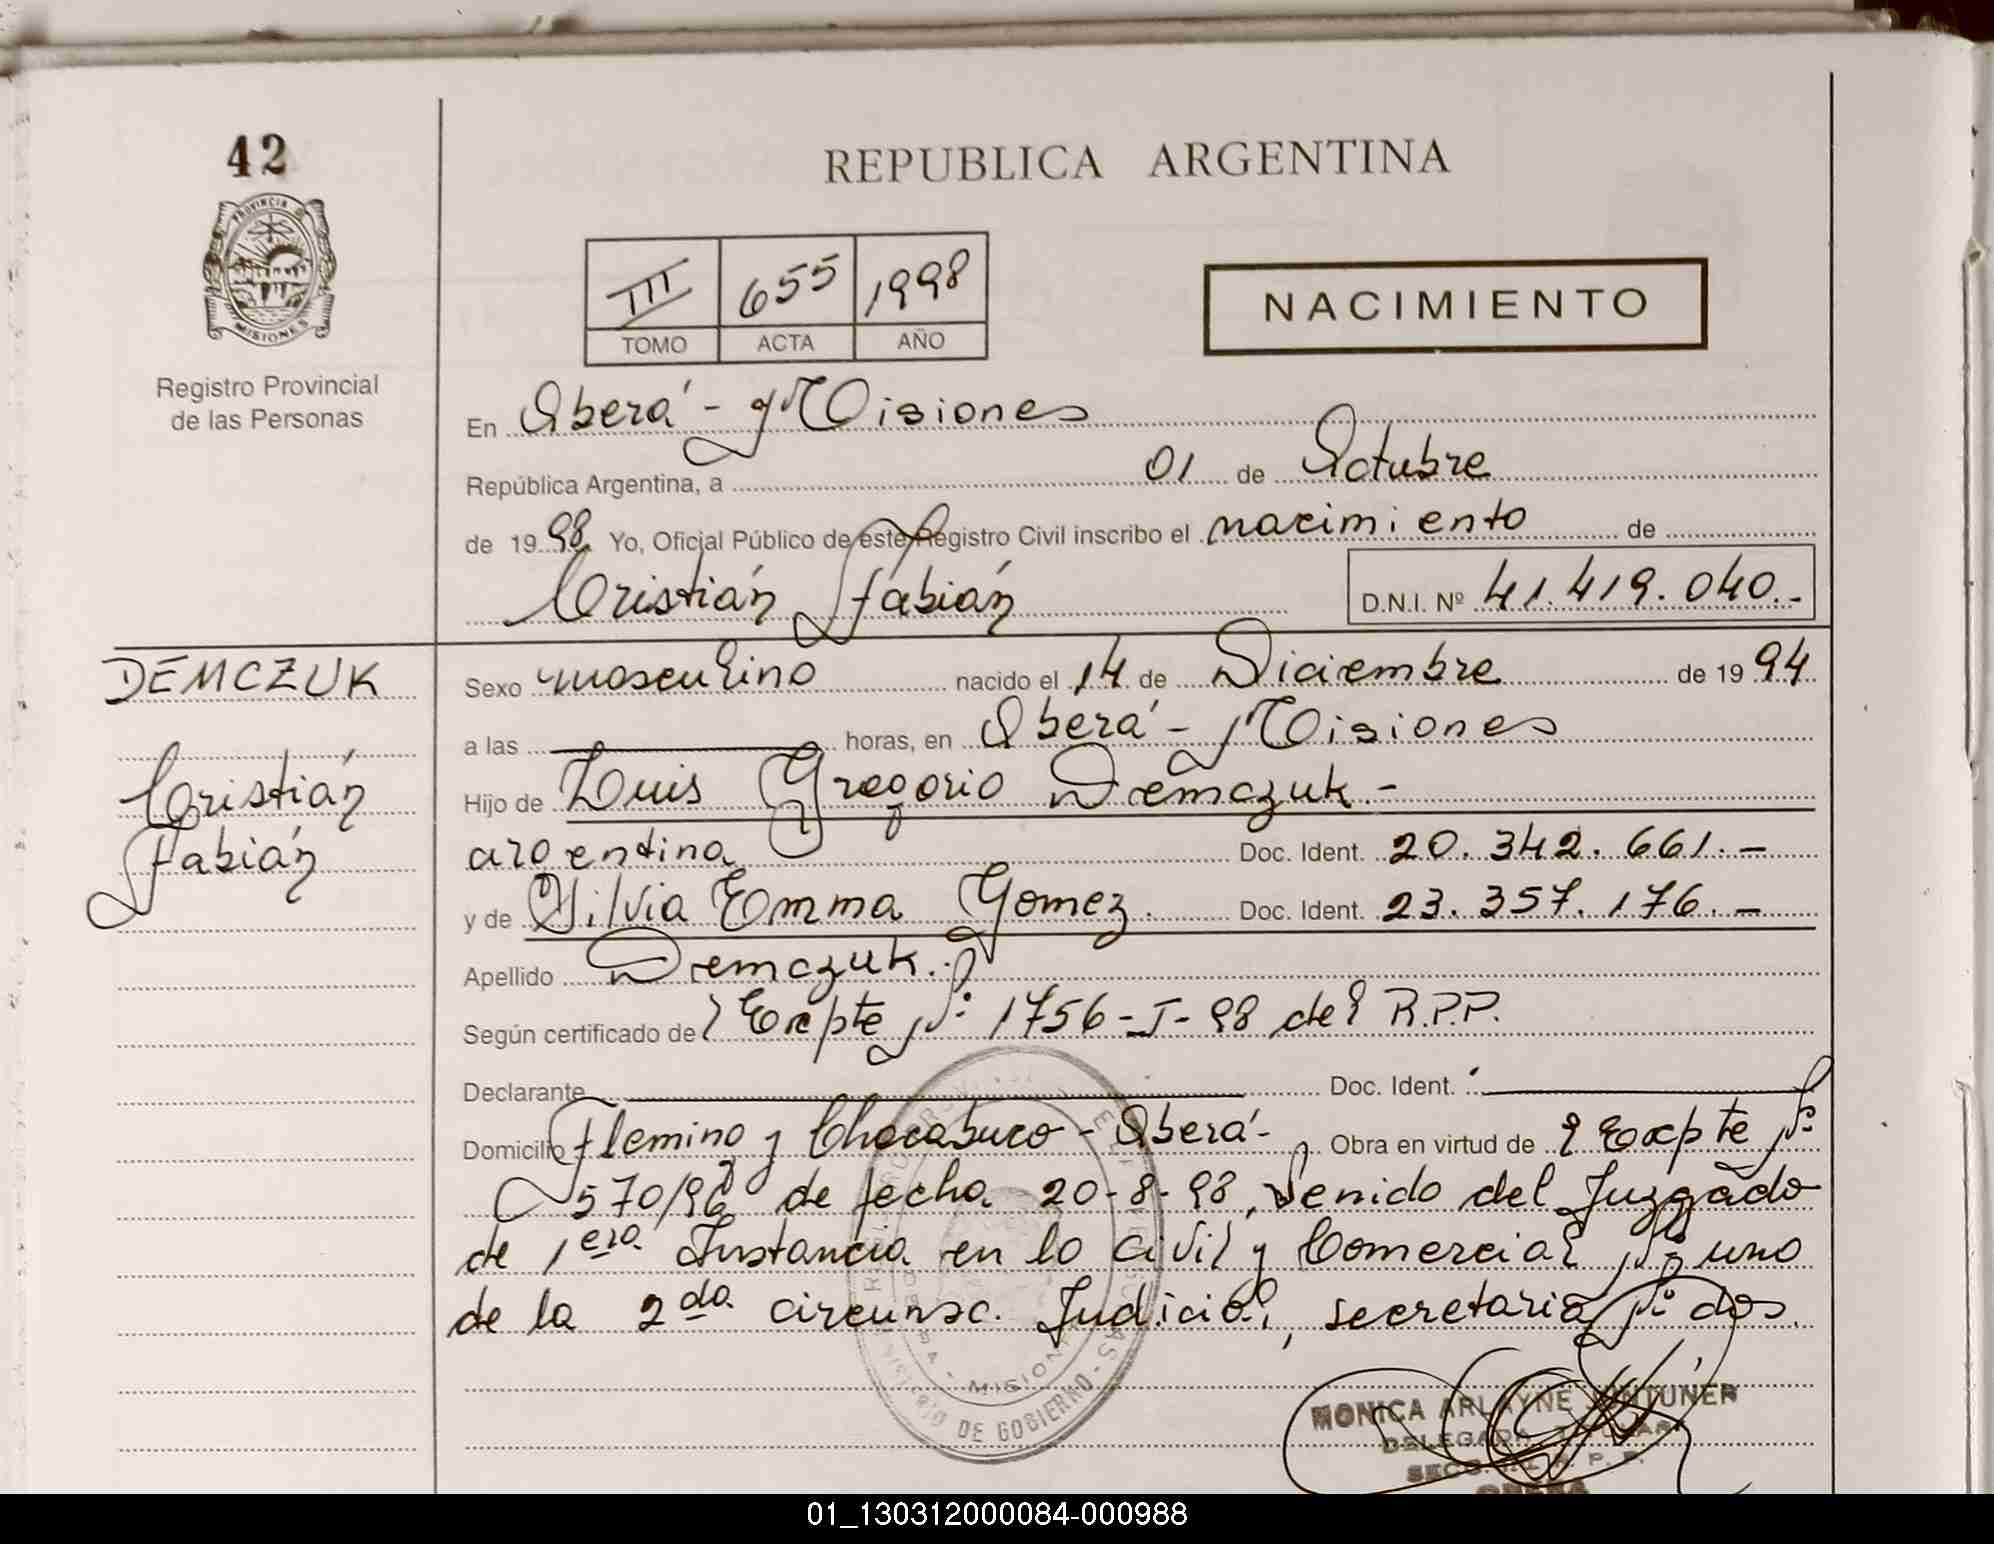 42
PROVINCIA D
MISIONES
Registro Provincial
de las Personas
REPUBLICA ARGENTINA
III 655 1998
TOMO ACTA AÑO
NACIMIENTO
En Oberá - Misiones
República Argentina, a 01 de Octubre
de 19 98 Yo, Oficial Público de este Registro Civil inscribo el nacimiento de
Cristián Fabián D.N.I. Nº 41.419.040.-
DEMCZUK
Cristián
Fabián
Sexo masculino nacido el 14 de Diciembre de 19 94
a las horas, en Oberá - Misiones
Hijo de Luis Gregorio Demczuk.-
argentina Doc. Ident. 20.342.661.-
y de Silvia Emma Gomez. Doc. Ident. 23.357.176.-
Apellido Demczuk.-
Según certificado de l Expte Nº 1756-I-98 del R.P.P.
Declarante Doc. Ident.
Domicilio Fleming y Chacabuco - Oberá - Obra en virtud de l Expte Nº
570/96 de fecha 20-8-98, Venido del Juzgado
de 1era Instancia en lo Civil y Comercial Nº uno
de la 2da. circunsc. Judicial, secretaria Nº dos.
MISIONES
MINISTERIO DE GOBIERNO
MONICA ARLAYNE
DELEGADA TITULAR
SECC. R. P. P.
OBERA
01_130312000084-000988